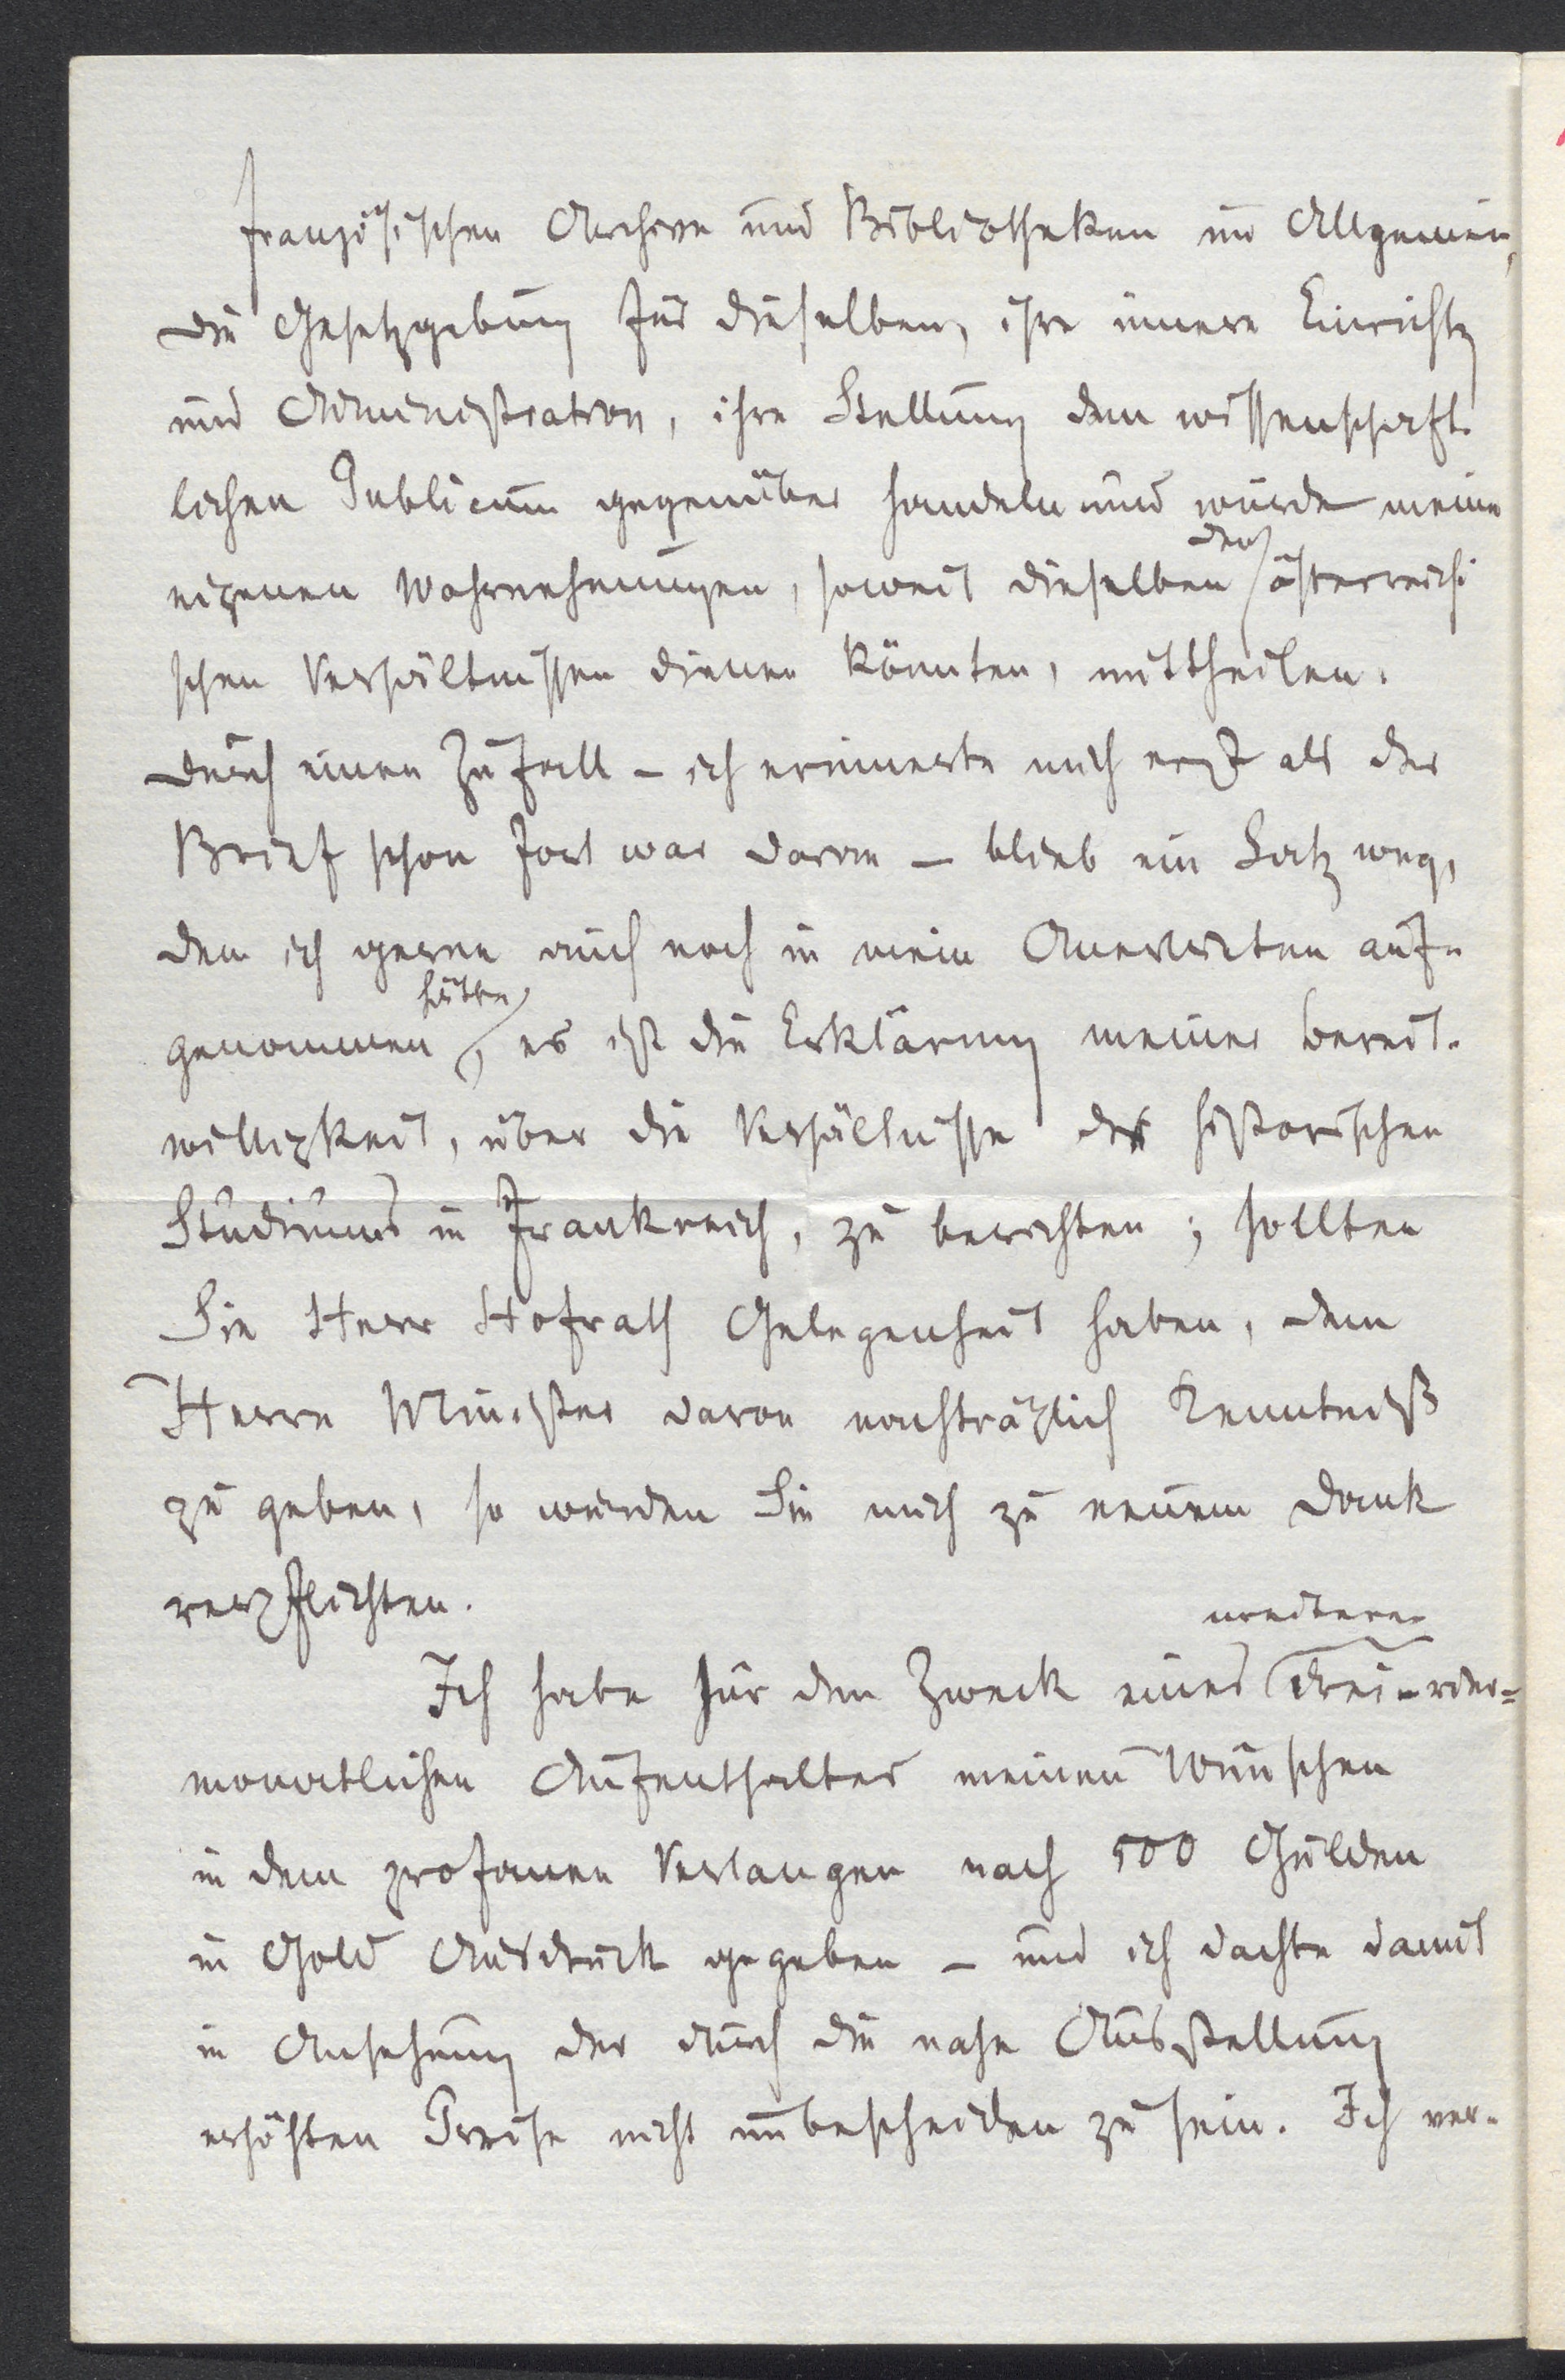 französischen Archive und Bibliotheken im Allgemein,
die Gesetzgebung für dieselben, ihre innere Einrichtg
und Administration, ihre Stellung dem wissenschaft-
lichen Publicum gegenüber handeln und würde meine
eigenen Wahrnehmungen, soweit dieselben den österreichi
schen Verhältnissen dienen könnten, mittheilen.
Durch einen Zufall – ich erinnerte mich erst als der
Brief schon fort war daran – blieb ein Satz weg,
den ich gerne auch noch in mein Anerbieten auf-
genommen hätte, es ist die Erklärung meiner Bereit-
willigkeit, über die Verhältnisse des historischen
Studiums in Frankreich, zu berichten; sollten
Sie Herr Hofrath Gelegenheit haben, dem
Herrn Minister davon nachträglich Kenntniß
zu geben, so würden Sie mich zu neuem Dank
verpflichten.
Ich habe für den Zweck eines weiteren drei-vier-
monatlichen Aufenthaltes meinen Wünschen
in dem profanen Verlangen nach 500 Gulden
in Gold Ausdruck gegeben – und ich dachte damit
in Ansehung der durch die nahe Ausstellung
erhöhten Preise nicht unbescheiden zu sein. Ich ver-